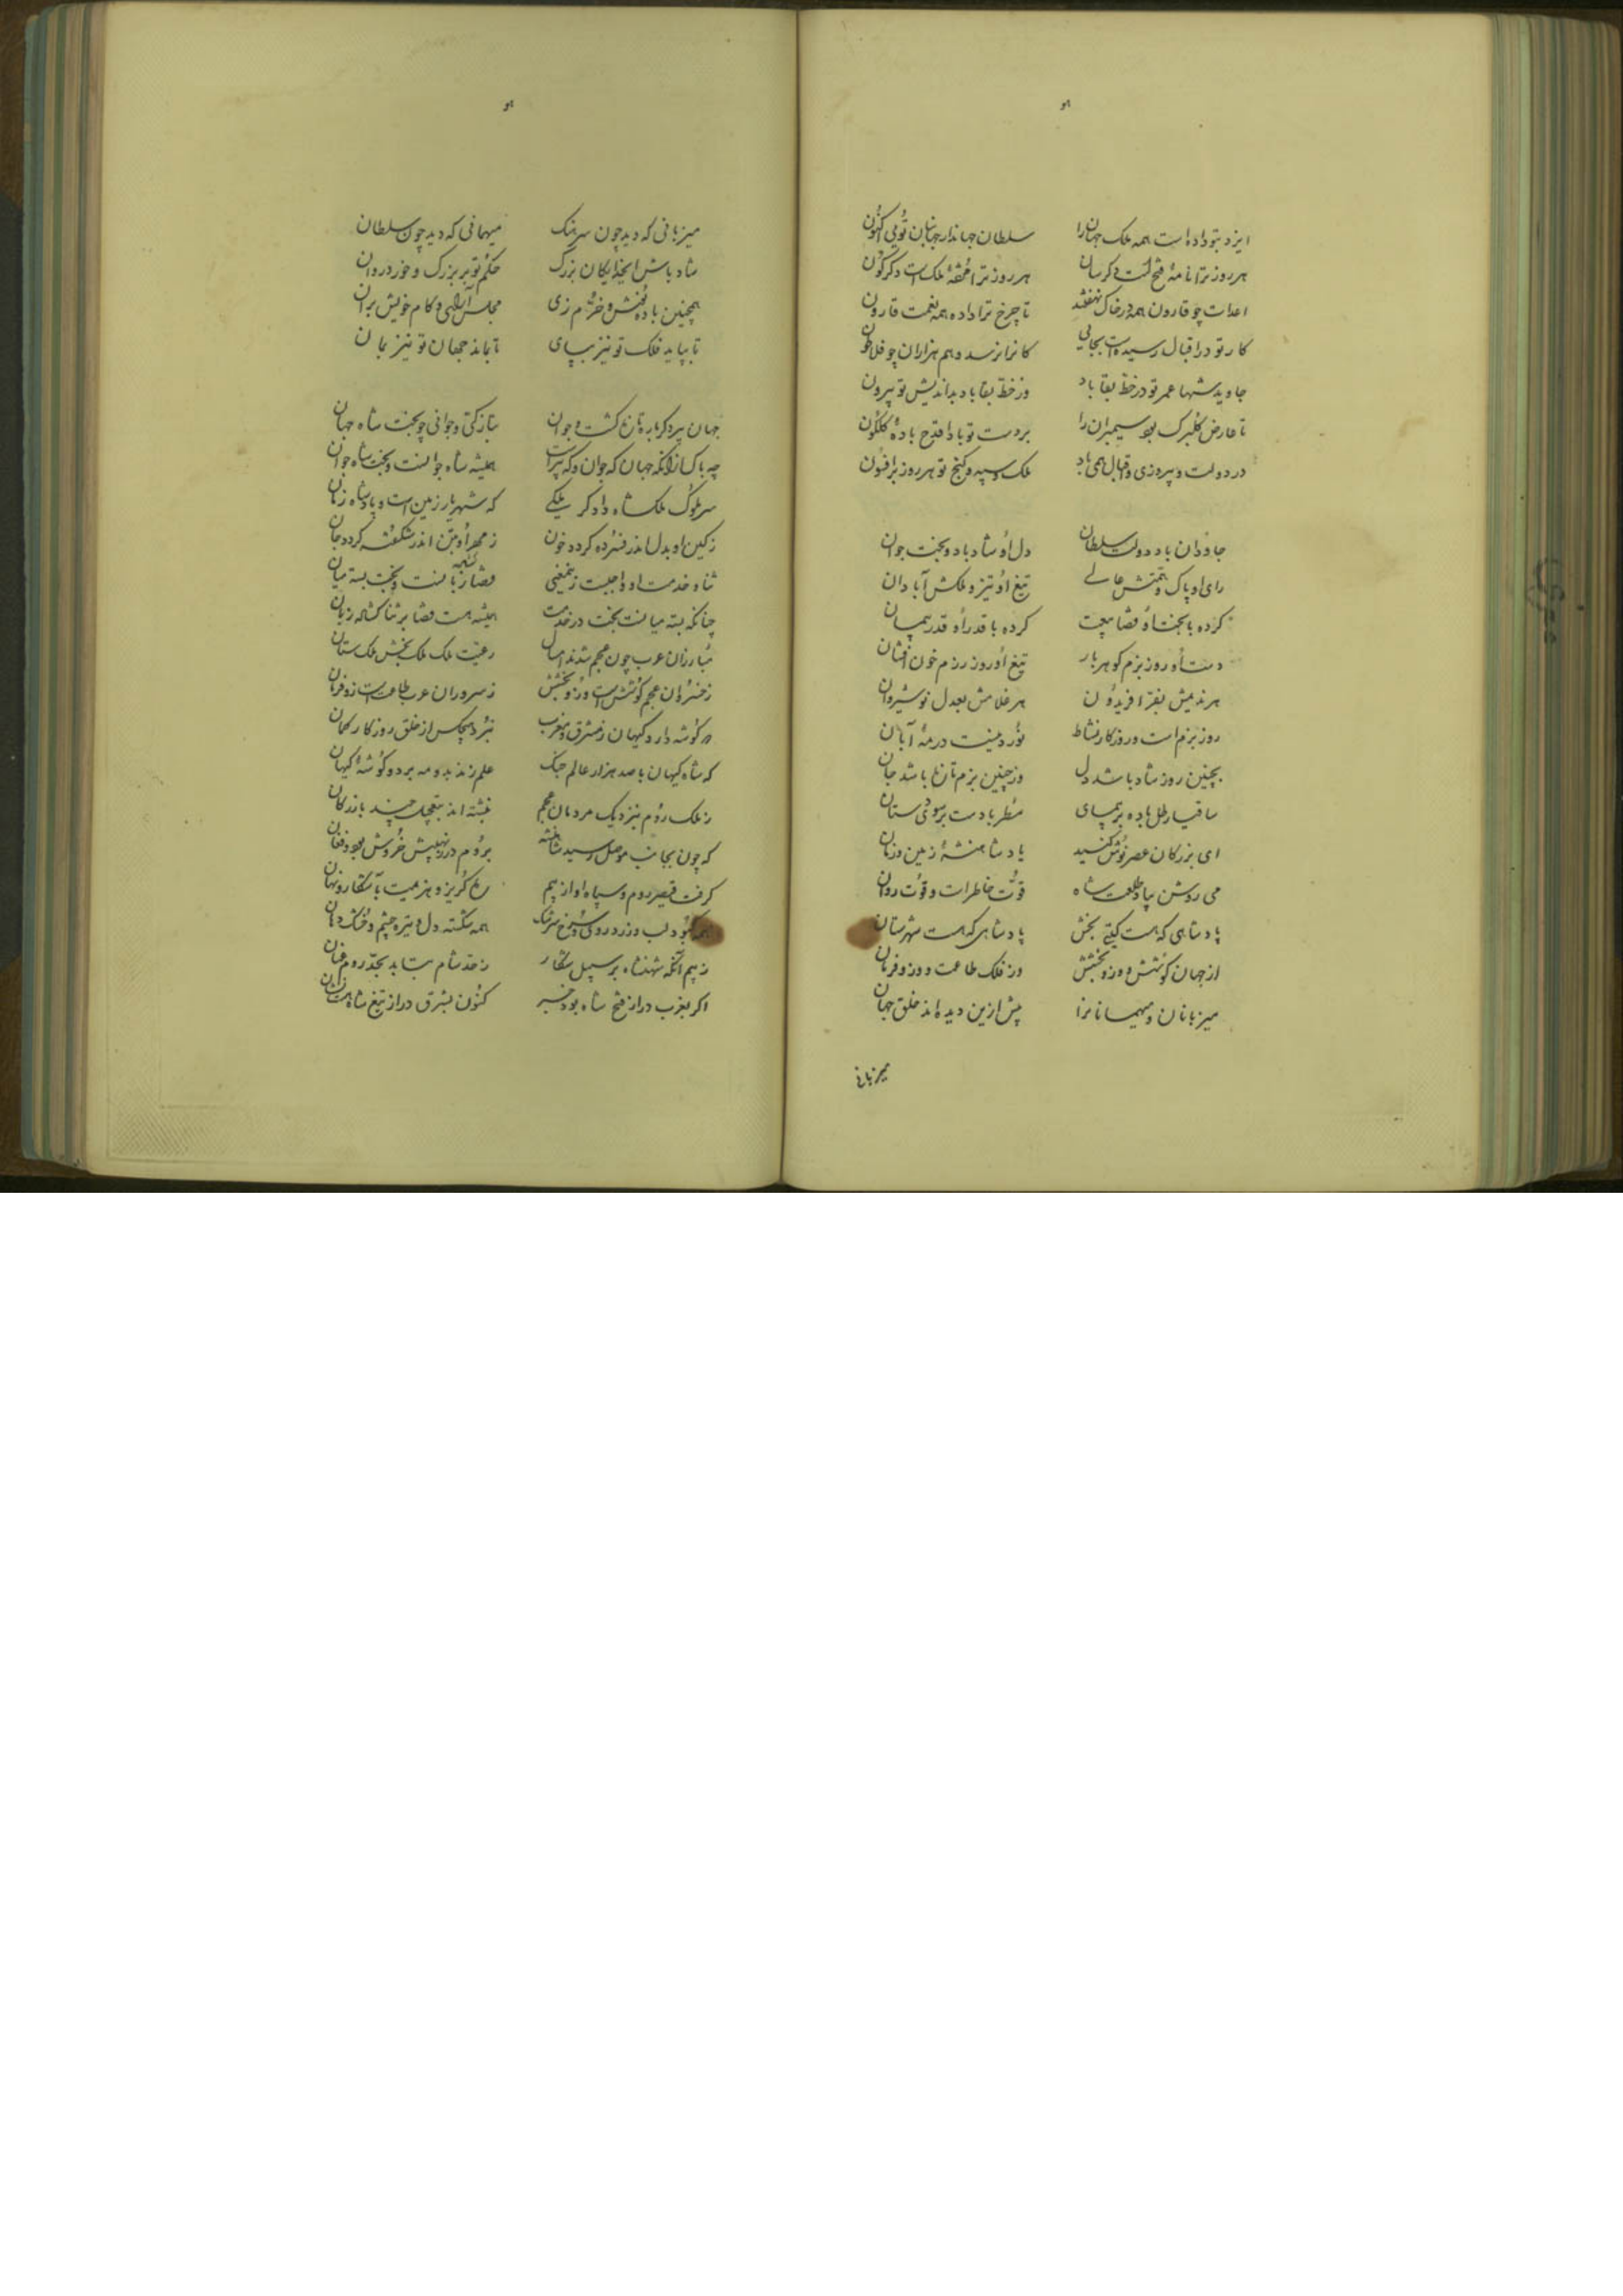 هو
ایزد بتو داده است همه ملک جهان را سلطان جهاندار جهانبان تویی اکنون
هر روز ترا نامهٔ فتح است دگرسان هر روز ترا تحفهٔ ملک است دگرگون
اعدات چو قارون همه در خاک نهفتند تا چرخ ترا داده همه نعمت قارون
کار تو در اقبال رسیده است بجائی کانرا نرسد وهم هزاران چو فلاطون
جاوید شها عمر تو در خط بقا باد وز خط بقا باد بداندیش تو بیرون
تا عارض گلبرگ بود سیمبران را بر دست تو بادا قدح بادهٔ گلگون
در دولت و پیروزی و اقبال همی باد ملک و سپه و گنج تو هر روز برافزون
جاودان باد دولت سلطان دل او شاد باد و بخت جوان
رای او پاک و همتش عالی تیغ او تیز و ملکش آبادان
کرده با بخت او قضا بیعت کرده با قدر او قدر پیمان
دست او روز بزم گوهربار تیغ او روز رزم خون افشان
هر ندیمش بفر افریدون هر غلامش بعدل نوشیروان
روز بزم است و روزگار نشاط در مه آبان
بچنین روز شاد باشد دل وز چنین بزم تازه باشد جان
ساقیا رطل باده بر پیمای مطربا دست بر
ای بزرگان عصر نوش کنید یاد شاهنشه زمین و زمان
می روشن بیاد طلعت شاه قوت خاطر است و قوت روان
پادشاهی که هست گیتی بخش پادشاهی که هست شهرستان
از جهان کوشش و ازو بخشش وز فلک طاعت و ازو فرمان
میزبانان و میهمانانرا پیش ازین دیده‌اند خلق جهان
میزبانی
هو
میزبانی که دید چون سرهنگ میهمانی که دید چون سلطان
شاد باش ای خدایگان بزرگ حکم تو بر بزرگ و خورد روان
همچنین باده نوش و خرم زی مجلس آرای و کام خویش بران
تا بپاید فلک تو نیز بپای تا بماند جهان تو نیز بمان
جهان پیر دگرباره تازه گشت و جوان بتازگی و جوانی چو بخت شاه جهان
چه باک از آنکه جهان گه جوان و گه پیر است همیشه شاه جوانست و بخت شاه جوان
سر ملوک ملکشاه دادگر ملکی که شهریار زمین است و پادشاه زمان
ز کین او بدل اندر فسرده گردد خون ز مهر او بتن اندر شکفته گردد جان
ثنا و خدمت او واجبست زینمعنی قضا گشاده زبانست و بخت بسته میان
چنانکه بسته میانست بخت در خدمت همیشه هست قضا بر ثنا گشاده زبان
مبارزان عرب چون عجم شدند امسال رعیت ملک ملک بخش ملک ستان
ز خسروان عجم کوشش است و زو بخشش ز سروران عرب طاعت است و زو فرمان
دو گوشه دارد کیهان ز مشرق و مغرب نبرد هیچکس از خلق روزگار گمان
که شاه کیهان با صد هزار عالم جنگ علم زند بدو مه بر دو گوشهٔ کیهان
ز ملک روم بنزدیک مردمان عجم نبشته‌اند بتعجیل چند بازرگان
که چون بجانب موصل رسید شاهنشه بروم در ز نهیبش خروش بود و فغان
گرفت قیصر روم و سپاه او از بیم ره گریز و هزیمت بآشکار و نهان
همه کبود لب و زرد روی و سرخ سرشک همه شکسته دل و تیره چشم و خشک دهان
ز بیم آنکه شهنشاه بر سبیل شکار ز حد شام بتابد بحد روم عنان
اگر بغرب در از فتح شاه بود خبر کنون بشرق در از تیغ شاه هست نشان